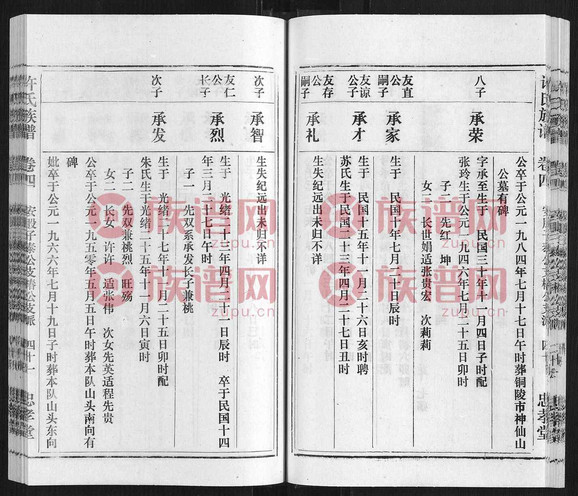 许氏族谱 卷四 忠孝堂
公卒于公元一九八四年七月十七日午时葬铜陵市神仙山
公墓有碑
八子 承荣 字承至生于 民国三十年十一月四日子时配
张玲生于公元一九四六年七月二十五日卯时
子二 先红 坤
女二 长世娟适张贵宏 次莉莉
友直公嗣子 承家 生于 民国十八年七月十日辰时
友谅公子 承才 生于 民国十五年十一月二十六日亥时聘
苏氏生于民国二十三年四月二十七日丑时
友存公嗣子 承礼 生失纪远出未归不详
次子 承智 生失纪远出未归不详
友仁公长子 承烈 生于 光绪二十三年四月二十日辰时 卒于民国十四
年三月二十七日午时
子一 先双系承发长子兼桃
次子 承发 生于 光绪二十七年十一月二十五日卯时配
朱氏生于光绪二十五年十一月六日寅时
子二 先双兼桃烈 旺殇
女二 长女 许许 适张伟 次女先英适程先贵
公卒于公元一九五零年五月五日午时葬本队山头南向有
碑
妣卒于公元一九六六年七月十九日子时葬本队山头东向
许氏族谱 卷四 安殷子泰公支椿公支派 四十一 忠孝堂
族谱网
zupu.cn
族谱网
zupu.cn
族谱网
zupu.cn
族谱网
zupu.cn